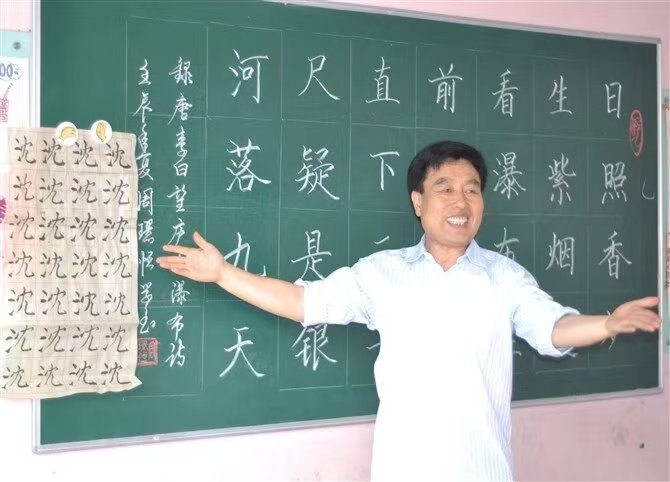 日照香
生紫烟
看瀑
前
直下
尺疑是银
河落九天
録唐李白望庐瀑布诗
壬辰年夏周
沈沈沈沈
沈沈沈沈
沈沈沈沈
沈沈沈沈
沈沈沈沈
沈沈沈沈
沈沈沈沈